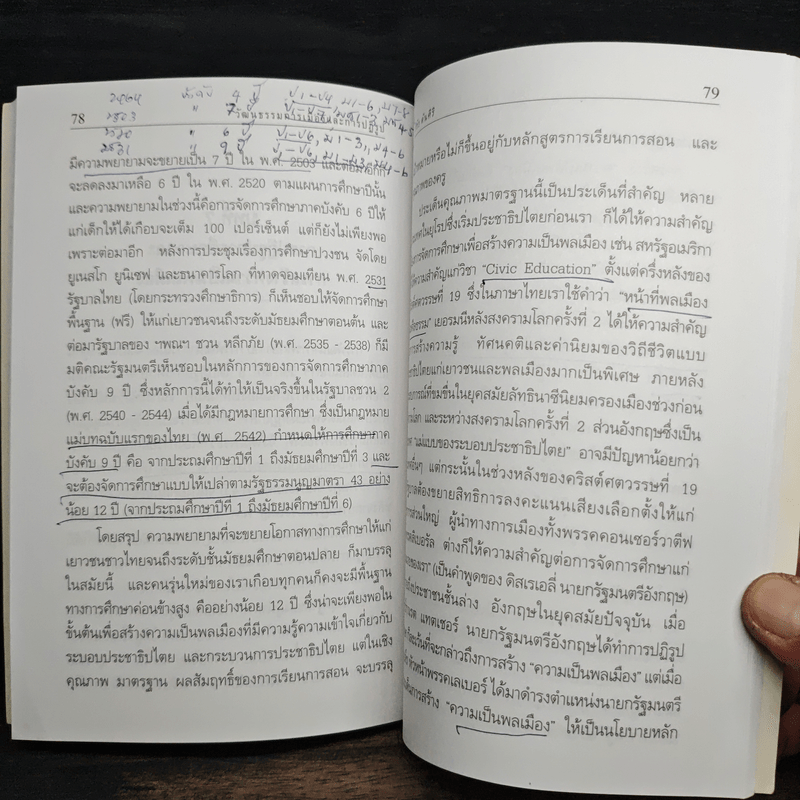 78
วัฒนธรรมการเมืองและการปฏิรูป
มีความพยายามจะขยายเป็น 7 ปี ใน พ.ศ. 2503 และต่อมาก็ก
จะลดลงมาเหลือ 6 ปี ใน พ.ศ. 2520 ตามแผนการศึกษาปีนั้น
และความพยายามในช่วงนี้คือการจัดการศึกษาภาคบังคับ 6 ปีให้
แก่เด็กให้ได้เกือบจะเต็ม 100 เปอร์เซ็นต์ แต่ก็ยังไม่เพียงพอ
เพราะต่อมาอีก หลังการประชุมเรื่องการศึกษาปวงชน จัดโดย
ยูเนสโก ยูนิเซฟ และธนาคารโลก ที่หาดจอมเทียน พ.ศ. 2531
รัฐบาลไทย (โดยกระทรวงศึกษาธิการ) ก็เห็นชอบให้จัดการศึกษา
พื้นฐาน (ฟรี) ให้แก่เยาวชนจนถึงระดับมัธยมศึกษาตอนต้น และ
ต่อมารัฐบาลของ ฯพณฯ ชวน หลีกภัย (พ.ศ. 2535 - 2538) ก็มี
มติคณะรัฐมนตรีเห็นชอบในหลักการของการจัดการศึกษาภาค
บังคับ 9 ปี ซึ่งหลักการนี้ได้ทำให้เป็นจริงขึ้นในรัฐบาลชวน 2
(พ.ศ. 2540 - 2544) เมื่อได้มีกฎหมายการศึกษา ซึ่งเป็นกฎหมาย
แม่บทฉบับแรกของไทย (พ.ศ. 2542) กำหนดให้การศึกษาภาค
บังคับ 9 ปี คือ จากประถมศึกษาปีที่ 1 ถึงมัธยมศึกษาปีที่ 3 และ
จะต้องจัดการศึกษาแบบให้เปล่าตามรัฐธรรมนูญมาตรา 43 อย่าง
น้อย 12 ปี (จากประถมศึกษาปีที่ 1 ถึงมัธยมศึกษาปีที่ 6)
โดยสรุป ความพยายามที่จะขยายโอกาสทางการศึกษาให้แก่
เยาวชนชาวไทยจนถึงระดับชั้นมัธยมศึกษาตอนปลาย ก็มาบรรลุ
ในสมัยนี้ และคนรุ่นใหม่ของเราเกือบทุกคนก็คงจะมีพื้นฐาน
ทางการศึกษาค่อนข้างสูง คืออย่างน้อย 12 ปี ซึ่งน่าจะเพียงพอใน
ขั้นต้นเพื่อสร้างความเป็นพลเมืองที่มีความรู้ความเข้าใจเกี่ยวกับ
ระบอบประชาธิปไตย และกระบวนการประชาธิปไตย แต่ในเชิง
คุณภาพ มาตรฐาน ผลสัมฤทธิ์ของการเรียนการสอน จะบรรลุ
79
หมายหรือไม่ก็ขึ้นอยู่กับหลักสูตรการเรียนการสอน และ
ภาพของครู
ประเด็นคุณภาพมาตรฐานนี้เป็นประเด็นที่สำคัญ หลาย
เทศในยุโรปซึ่งเริ่มประชาธิปไตยก่อนเรา ก็ได้ให้ความสำคัญ
การจัดการศึกษาเพื่อสร้างความเป็นพลเมือง เช่น สหรัฐอเมริกา
ความสำคัญแก่วิชา "Civic Education" ตั้งแต่ครึ่งหลังของ
ศตวรรษที่ 19 ซึ่งในภาษาไทยเราใช้คำว่า "หน้าที่พลเมือง
ศีลธรรม" เยอรมนีหลังสงครามโลกครั้งที่ 2 ได้ให้ความสำคัญ
การสร้างความรู้ ทัศนคติและค่านิยมของวิถีชีวิตแบบ
ธิปไตยแก่เยาวชนและพลเมืองมากเป็นพิเศษ ภายหลัง
การณ์ที่ขมขื่นในยุคสมัยลัทธินาซีนิยมครองเมืองช่วงก่อน
โลก และระหว่างสงครามโลกครั้งที่ 2 ส่วนอังกฤษซึ่งเป็น
แม่แบบของระบอบประชาธิปไตย" อาจมีปัญหาน้อยกว่า
อื่นๆ แต่กระนั้นในช่วงหลังของคริสต์ศตวรรษที่ 19
ต้องขยายสิทธิการลงคะแนนเสียงเลือกตั้งให้แก่
ส่วนใหญ่ ผู้นำทางการเมืองทั้งพรรคคอนเซอร์วาตีฟ
ลิเบอรัล ต่างก็ให้ความสำคัญต่อการจัดการศึกษาแก่
ของเรา" (เป็นคำพูดของ ดิสเรเอลี่ นายกรัฐมนตรีอังกฤษ)
ประชาชนชั้นล่าง อังกฤษในยุคสมัยปัจจุบัน เมื่อ
แทตเชอร์ นายกรัฐมนตรีอังกฤษได้ทำการปฏิรูป
เว้นที่จะกล่าวถึงการสร้าง "ความเป็นพลเมือง" แต่เมื่อ
หัวหน้าพรรคเลเบอร์ ได้มาดำรงตำแหน่งนายกรัฐมนตรี
การสร้าง "ความเป็นพลเมือง" ให้เป็นนโยบายหลัก